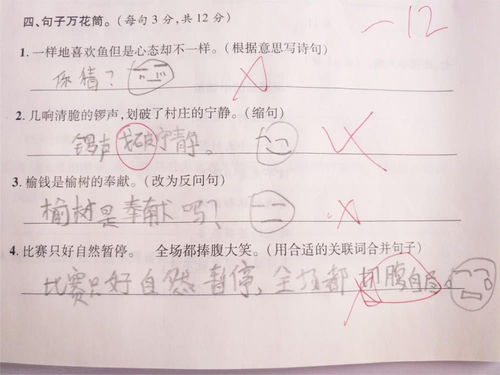 四、句子万花筒。(每句3分,共12分)
-12
1. 一样地喜欢鱼但是心态却不一样。(根据意思写诗句)
你猜?
2. 几响清脆的锣声,划破了村庄的宁静。(缩句)
锣声划破宁静。
3. 榆钱是榆树的奉献。(改为反问句)
榆树是奉献吗?
4. 比赛只好自然暂停。 全场都捧腹大笑。(用合适的关联词合并句子)
比赛只好自然暂停,全场都切腹自尽